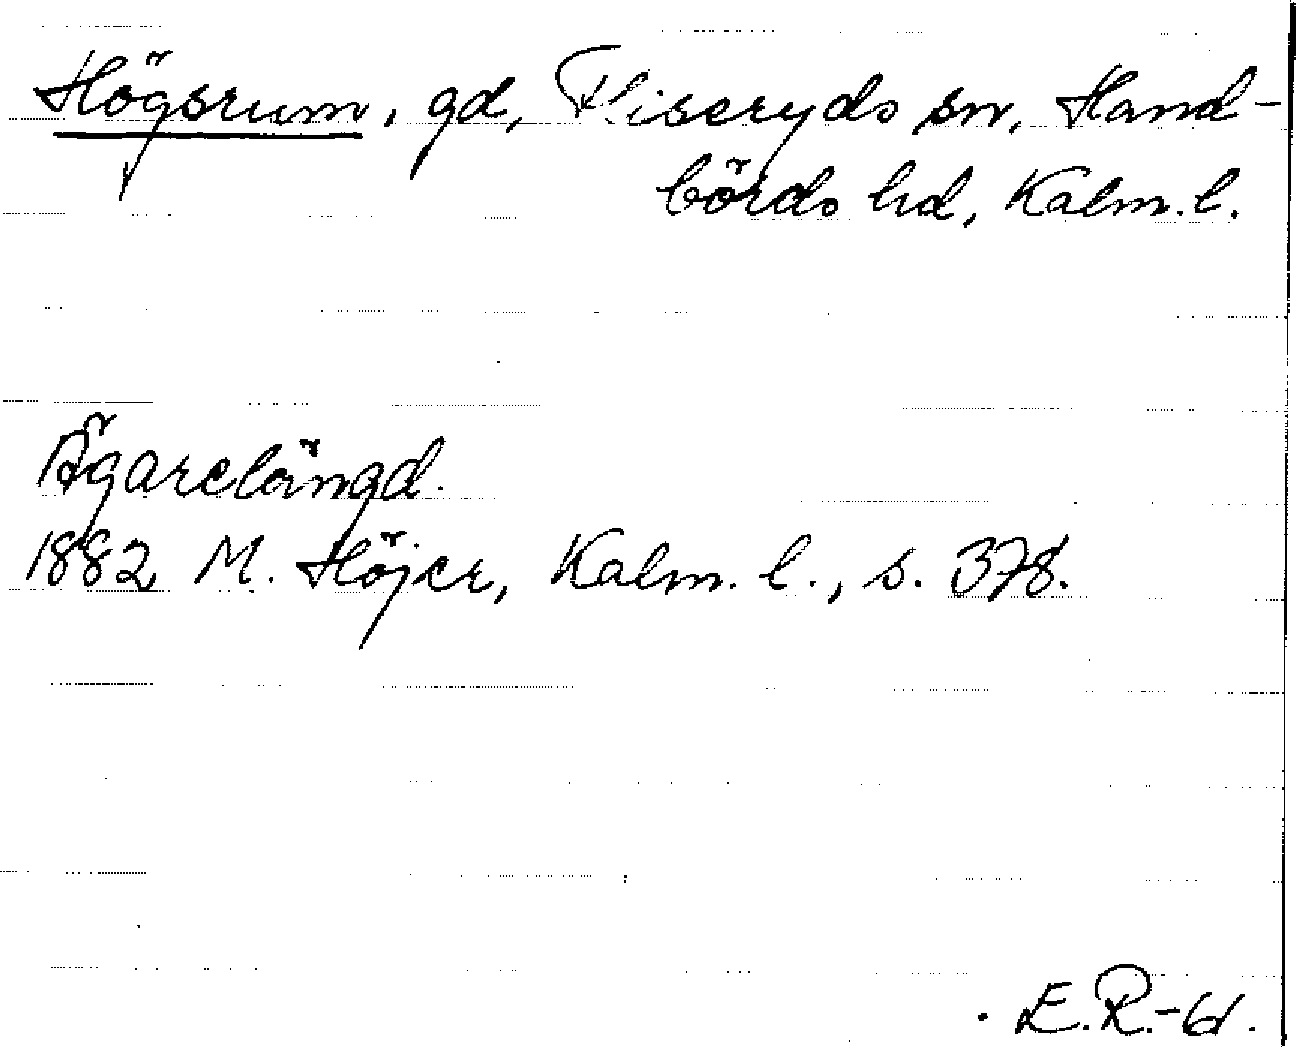 Högsrum, gd, Fliseryds sn, Hand-
börds hd, Kalm. l.
Ägarelängd.
1882 M. Höjer, Kalm. l., s. 378.
E.R.-61.